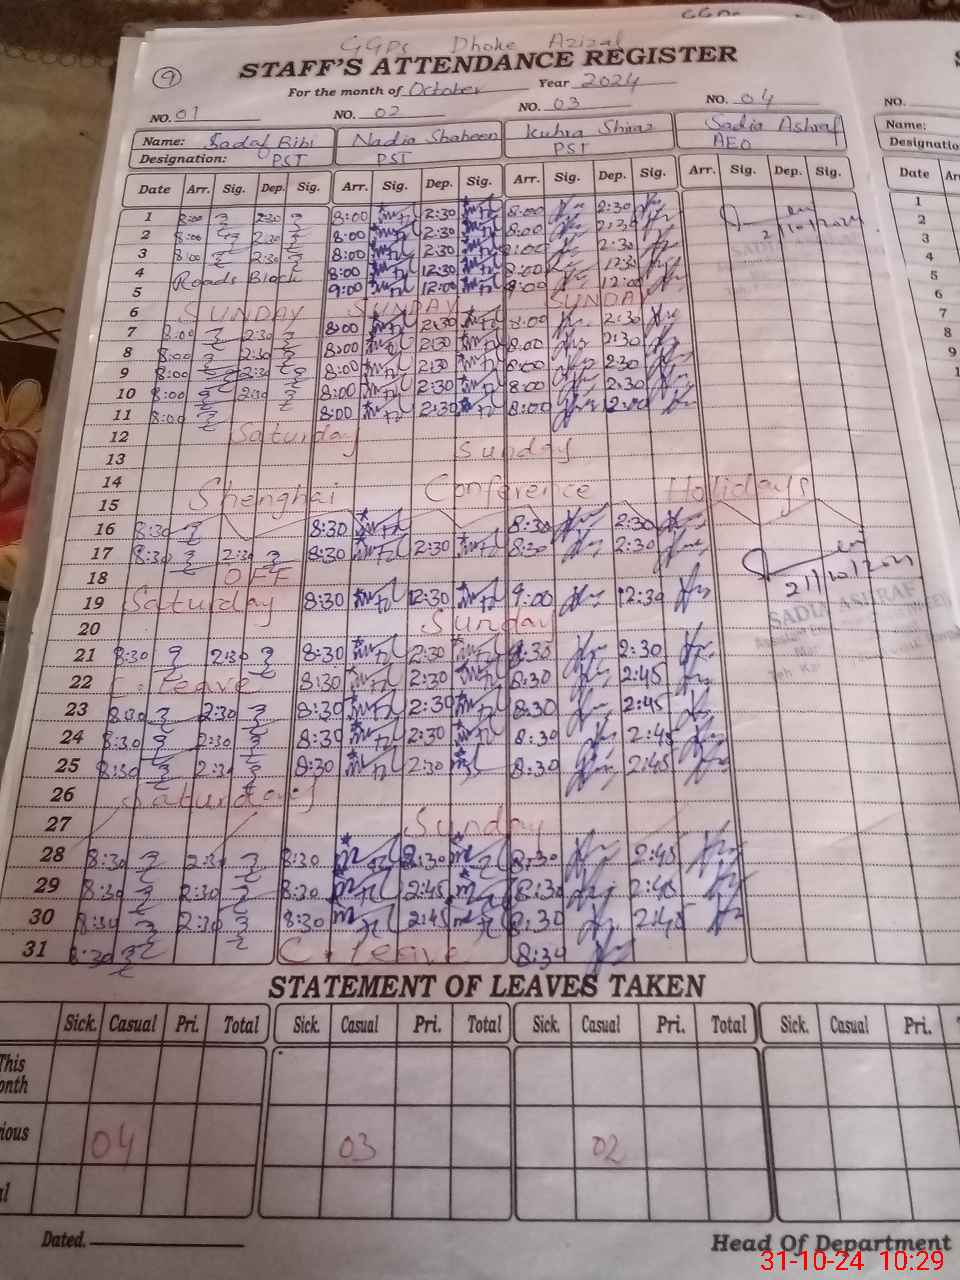 GGPS Dhoke Azizal
9
STAFF'S ATTENDANCE REGISTER
For the month of October Year 2024
NO. 01 NO. 02 NO. 03 NO. 04 NO.
Name: Sadaf Bibi Nadia Shaheen Kubra Shiraz Sadia Ashraf Name:
Designation: PST PST PST AEO
Date Arr. Sig. Dep. Sig. Arr. Sig. Dep. Sig. Arr. Sig. Dep. Sig. Arr. Sig. Dep. Sig. Date
1 8:00 2:30 8:00 2:30 8:00 2:30 1
2 8:00 2:30 8:00 2:30 8:00 2:30 2
3 8:00 2:30 8:00 2:30 8:00 2:30 3
4 Roads Block 8:00 12:30 8:00 12:30 4
5 9:00 12:00 9:00 12:00 5
6 SUNDAY SUNDAY SUNDAY 6
7 8:00 2:30 8:00 2:30 8:00 2:30 7
8 8:00 2:30 8:00 2:30 8:00 2:30 8
9 8:00 2:30 8:00 2:30 8:00 2:30 9
10 8:00 2:30 8:00 2:30 8:00 2:30
11 8:00 8:00 2:30 8:00 12:00
12 Saturday
13 Sunday
14
15 Shenghai Conference Holidays
16 8:30 8:30 8:30 2:30
17 8:30 2:30 8:30 2:30 8:30 2:30
18 OFF
19 Saturday 8:30 12:30 9:00 12:30
21/10/2024
SADIA ASHRAF
20 Sunday
21 8:30 2:30 8:30 2:30 8:30 2:30
22 C. Leave 8:30 2:30 8:30 2:45
23 8:30 2:30 8:30 2:30 8:30 2:45
24 8:30 2:30 8:30 2:30 8:30 2:45
25 8:30 2:30 8:30 2:30 8:30 2:45
26 Saturday
27 Sunday
28 8:30 2:30 8:30 2:30 8:30 2:45
29 8:30 2:30 8:30 2:45 8:30 2:45
30 8:30 2:30 8:30 2:45 8:30 2:45
31 8:30 C. Leave 8:30
STATEMENT OF LEAVES TAKEN
Sick. Casual Pri. Total Sick. Casual Pri. Total Sick. Casual Pri. Total Sick. Casual Pri.
This
04 03 02
Dated. Head Of Department
31-10-24 10:29